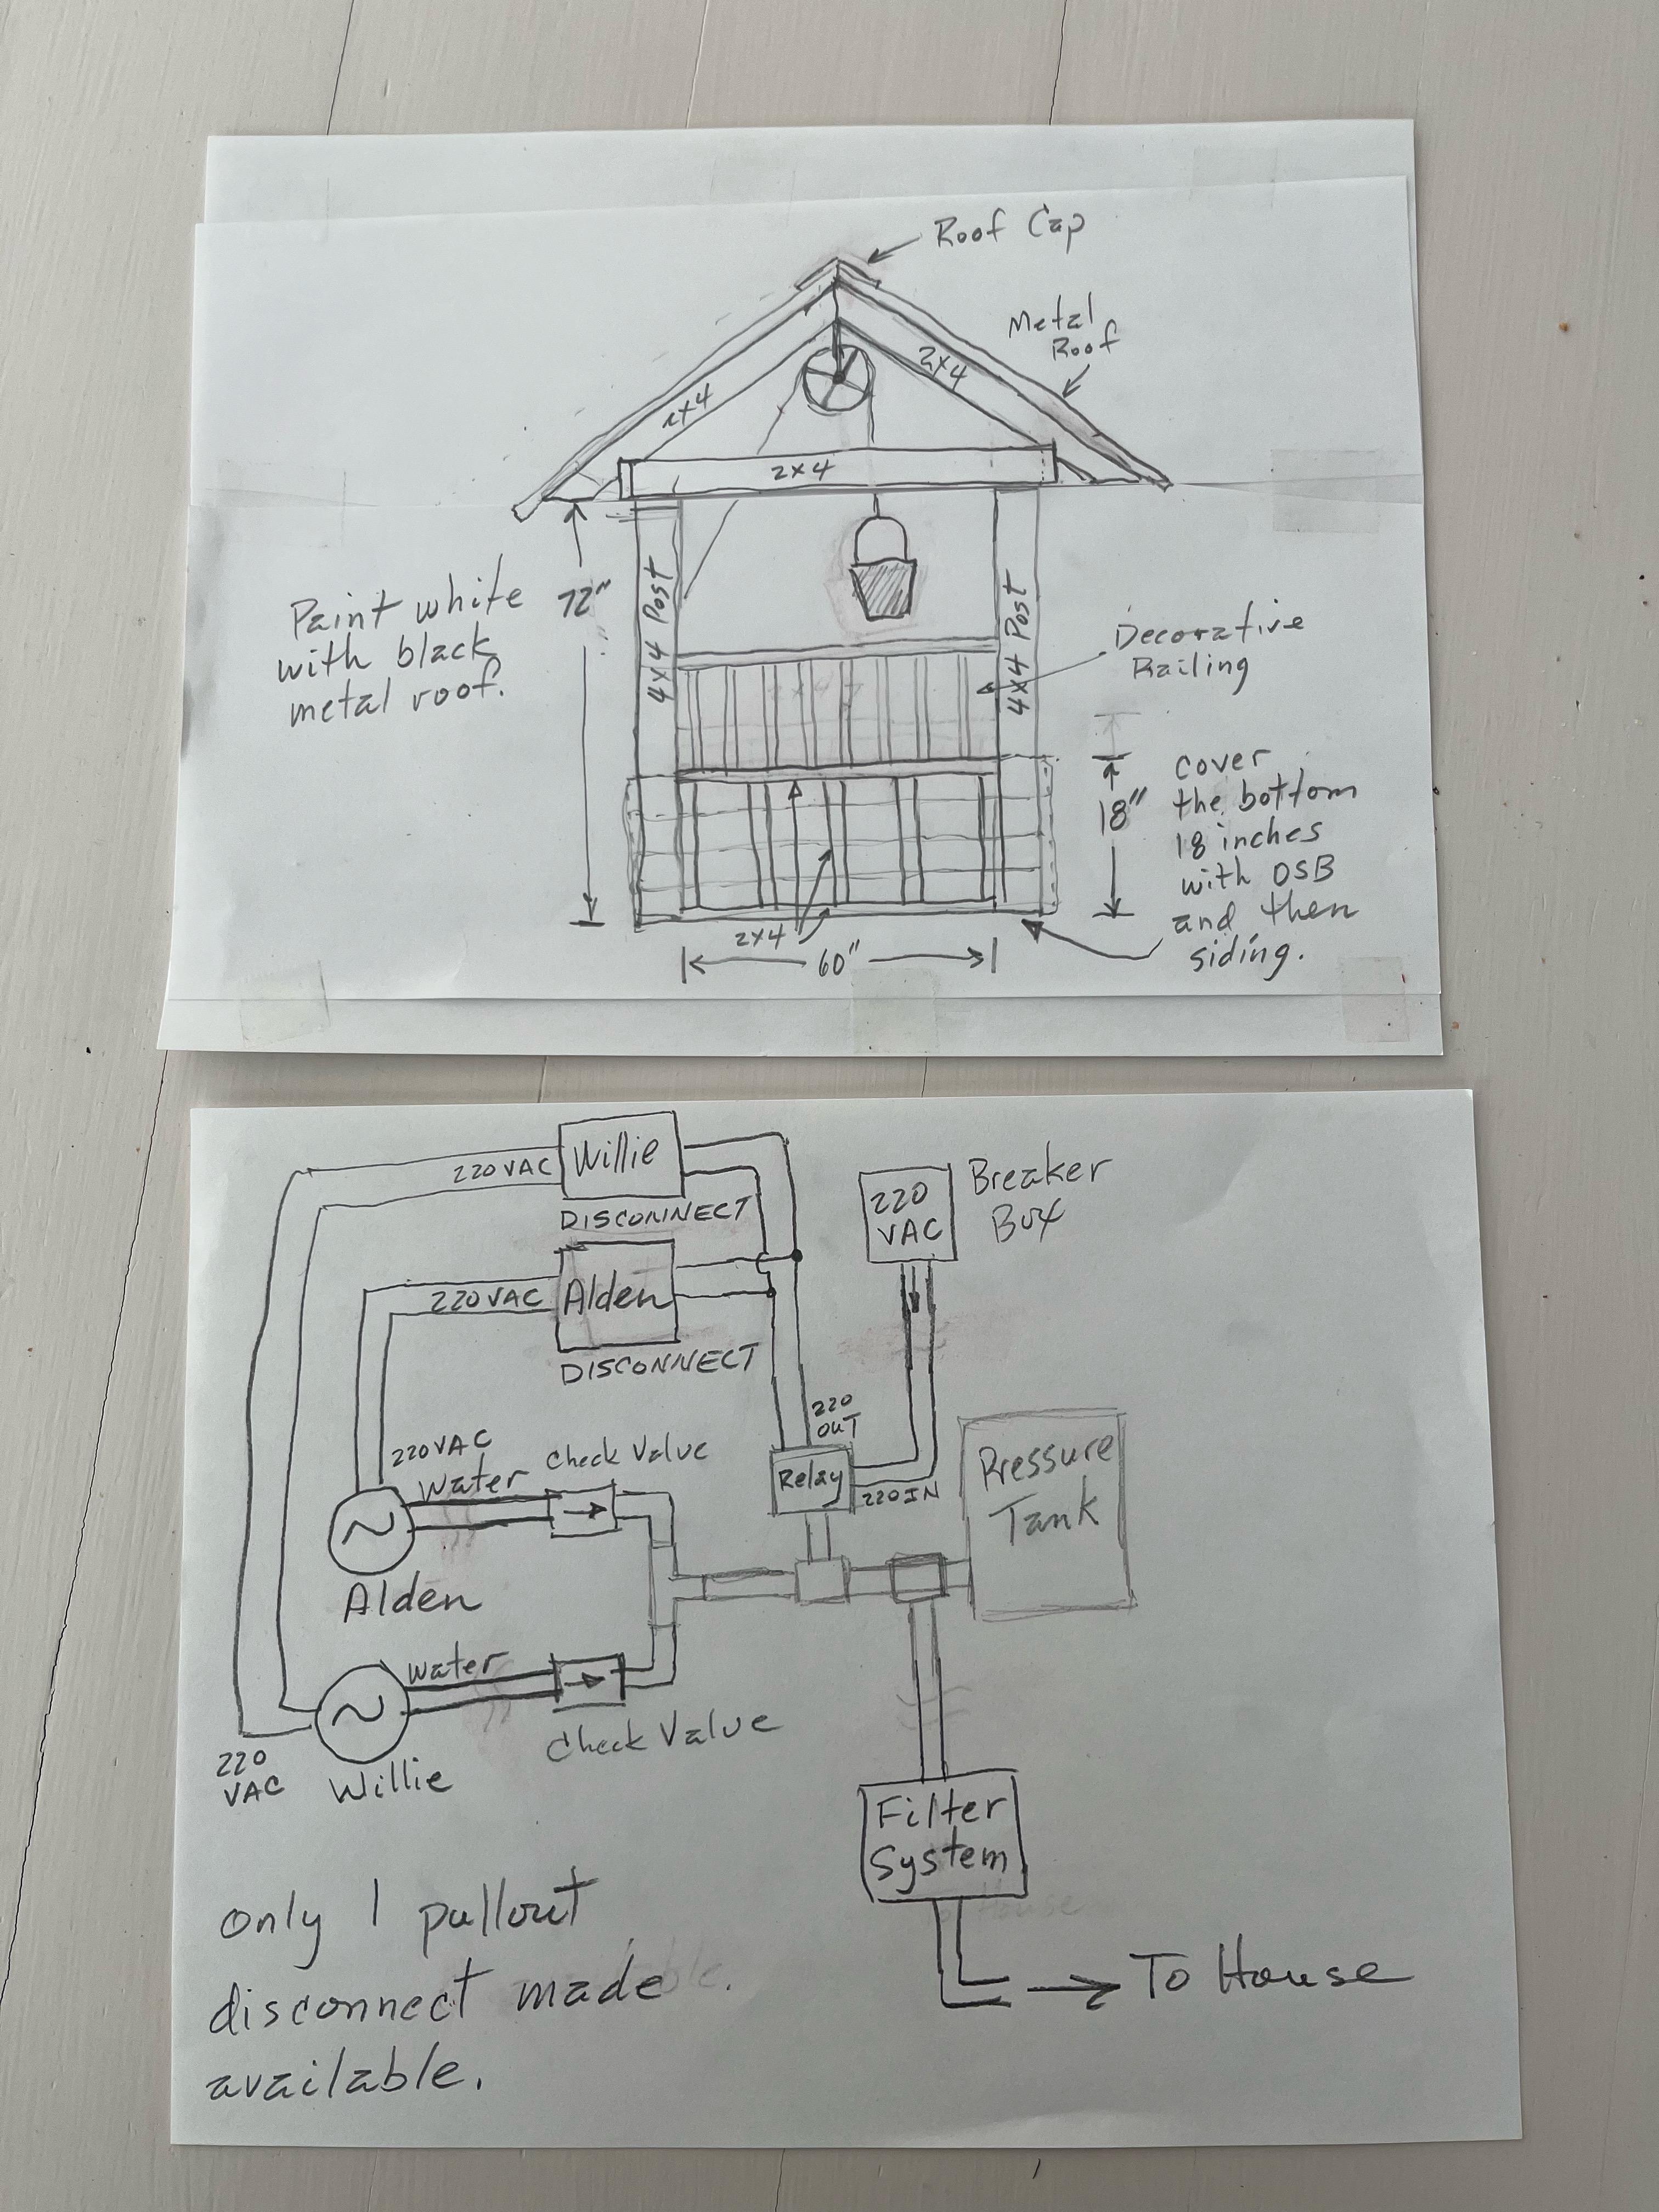 Roof Cap
Metal
Roof
2x4
2x4
2x4
Paint white
with black
metal roof.
72"
4x4 Post
4x4 Post
Decorative
Railing
18"
cover
the bottom
18 inches
with OSB
and then
siding.
2x4
60"
220 VAC
Willie
DISCONNECT
220 VAC
Alden
DISCONNECT
220
VAC
Breaker
Box
220
OUT
Relay
220 IN
Pressure
Tank
220 VAC
Water
Check Value
Alden
Water
Check Value
220
VAC
Willie
Filter
System
To House
only 1 pullout
disconnect made
available.